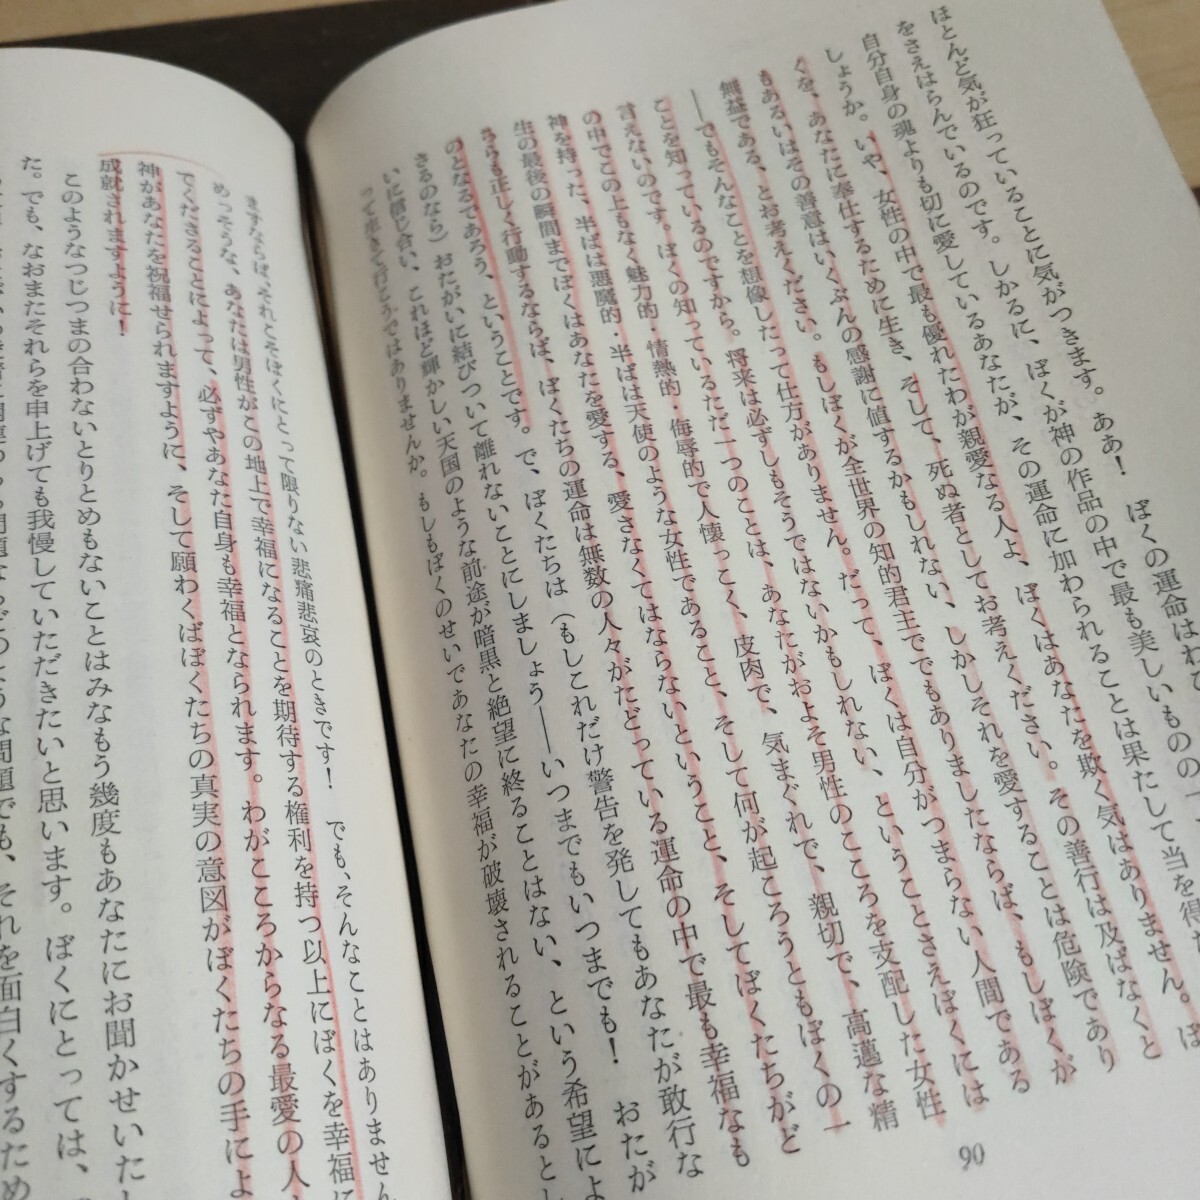 ぼくの運命はわ
ほとんど気が狂っていることに気がつきます。ああ! ぼくが神の作品の中で最も美しいものの一
をさえはらんでいるのです。しかるに、ぼくが
自分自身の魂よりも切に愛しているあなたが、その運命に加わられることは果たして当を得
しょうか。いや、女性の中で最も優れたわが親愛なる人よ、ぼくはあなたを欺く気はありません。ぼ
くを、あなたに奉仕するために生き、そして、死ぬ者としてお考えください。その善行は及ばなくと
もあるいはその善意はいくぶんの感謝に値するかもしれない、しかしそれを愛することは危険であり
無益である、とお考えください。もしぼくが全世界の知的君主ででもありましたならば、もしぼくが
――でもそんなことを想像したって仕方がありません。だって、ぼくは自分がつまらない人間である
ことを知っているのですから。将来は必ずしもそうではないかもしれない、ということさえぼくには
言えないのです。ぼくの知っているただ一つのことは、あなたがおよそ男性のこころを支配した女性
の中でこの上もなく魅力的・情熱的・侮辱的で人懐っこく、皮肉で、気まぐれで、親切で、高邁な精
神を持った、半ばは悪魔的・半ばは天使のような女性であること、そして何が起ころうともぼくの一
生の最後の瞬間までぼくはあなたを愛する、愛さなくてはならないということ、そしてぼくたちがど
さらも正しく行動するならば、ぼくたちの運命は無数の人々がたどっている運命の中で最も幸福なも
のとなるであろう、ということです。で、ぼくたちは(もしこれだけ警告を発してもあなたが敢行な
さるのなら)おたがいに結びついて離れないことにしましょう――いつまでもいつまでも! おたが
いに信じ合い、これほど輝かしい天国のような前途が暗黒と絶望に終ることはない、という希望によ
って生きて行こうではありませんか。もしもぼくのせいであなたの幸福が破壊されることがあるとし
90
ますならば、それこそぼくにとって限りない悲痛悲哀のときです! でも、そんなことはありません
めっそうな、あなたは男性がこの地上で幸福になることを期待する権利を持つ以上にぼくを幸福に
てくださることによって、必ずやあなた自身も幸福となられます。わがこころからなる最愛の人
神があなたを祝福せられますように、そして願わくばぼくたちの真実の意図がぼくたちの手によ
成就されますように!
このようなつじつまの合わないとりとめもないことはみなもう幾度もあなたにお聞かせいたし
た。でも、なおまたそれらを申上げても我慢していただきたいと思います。ぼくにとっては、
問題でも、それを面白くするため